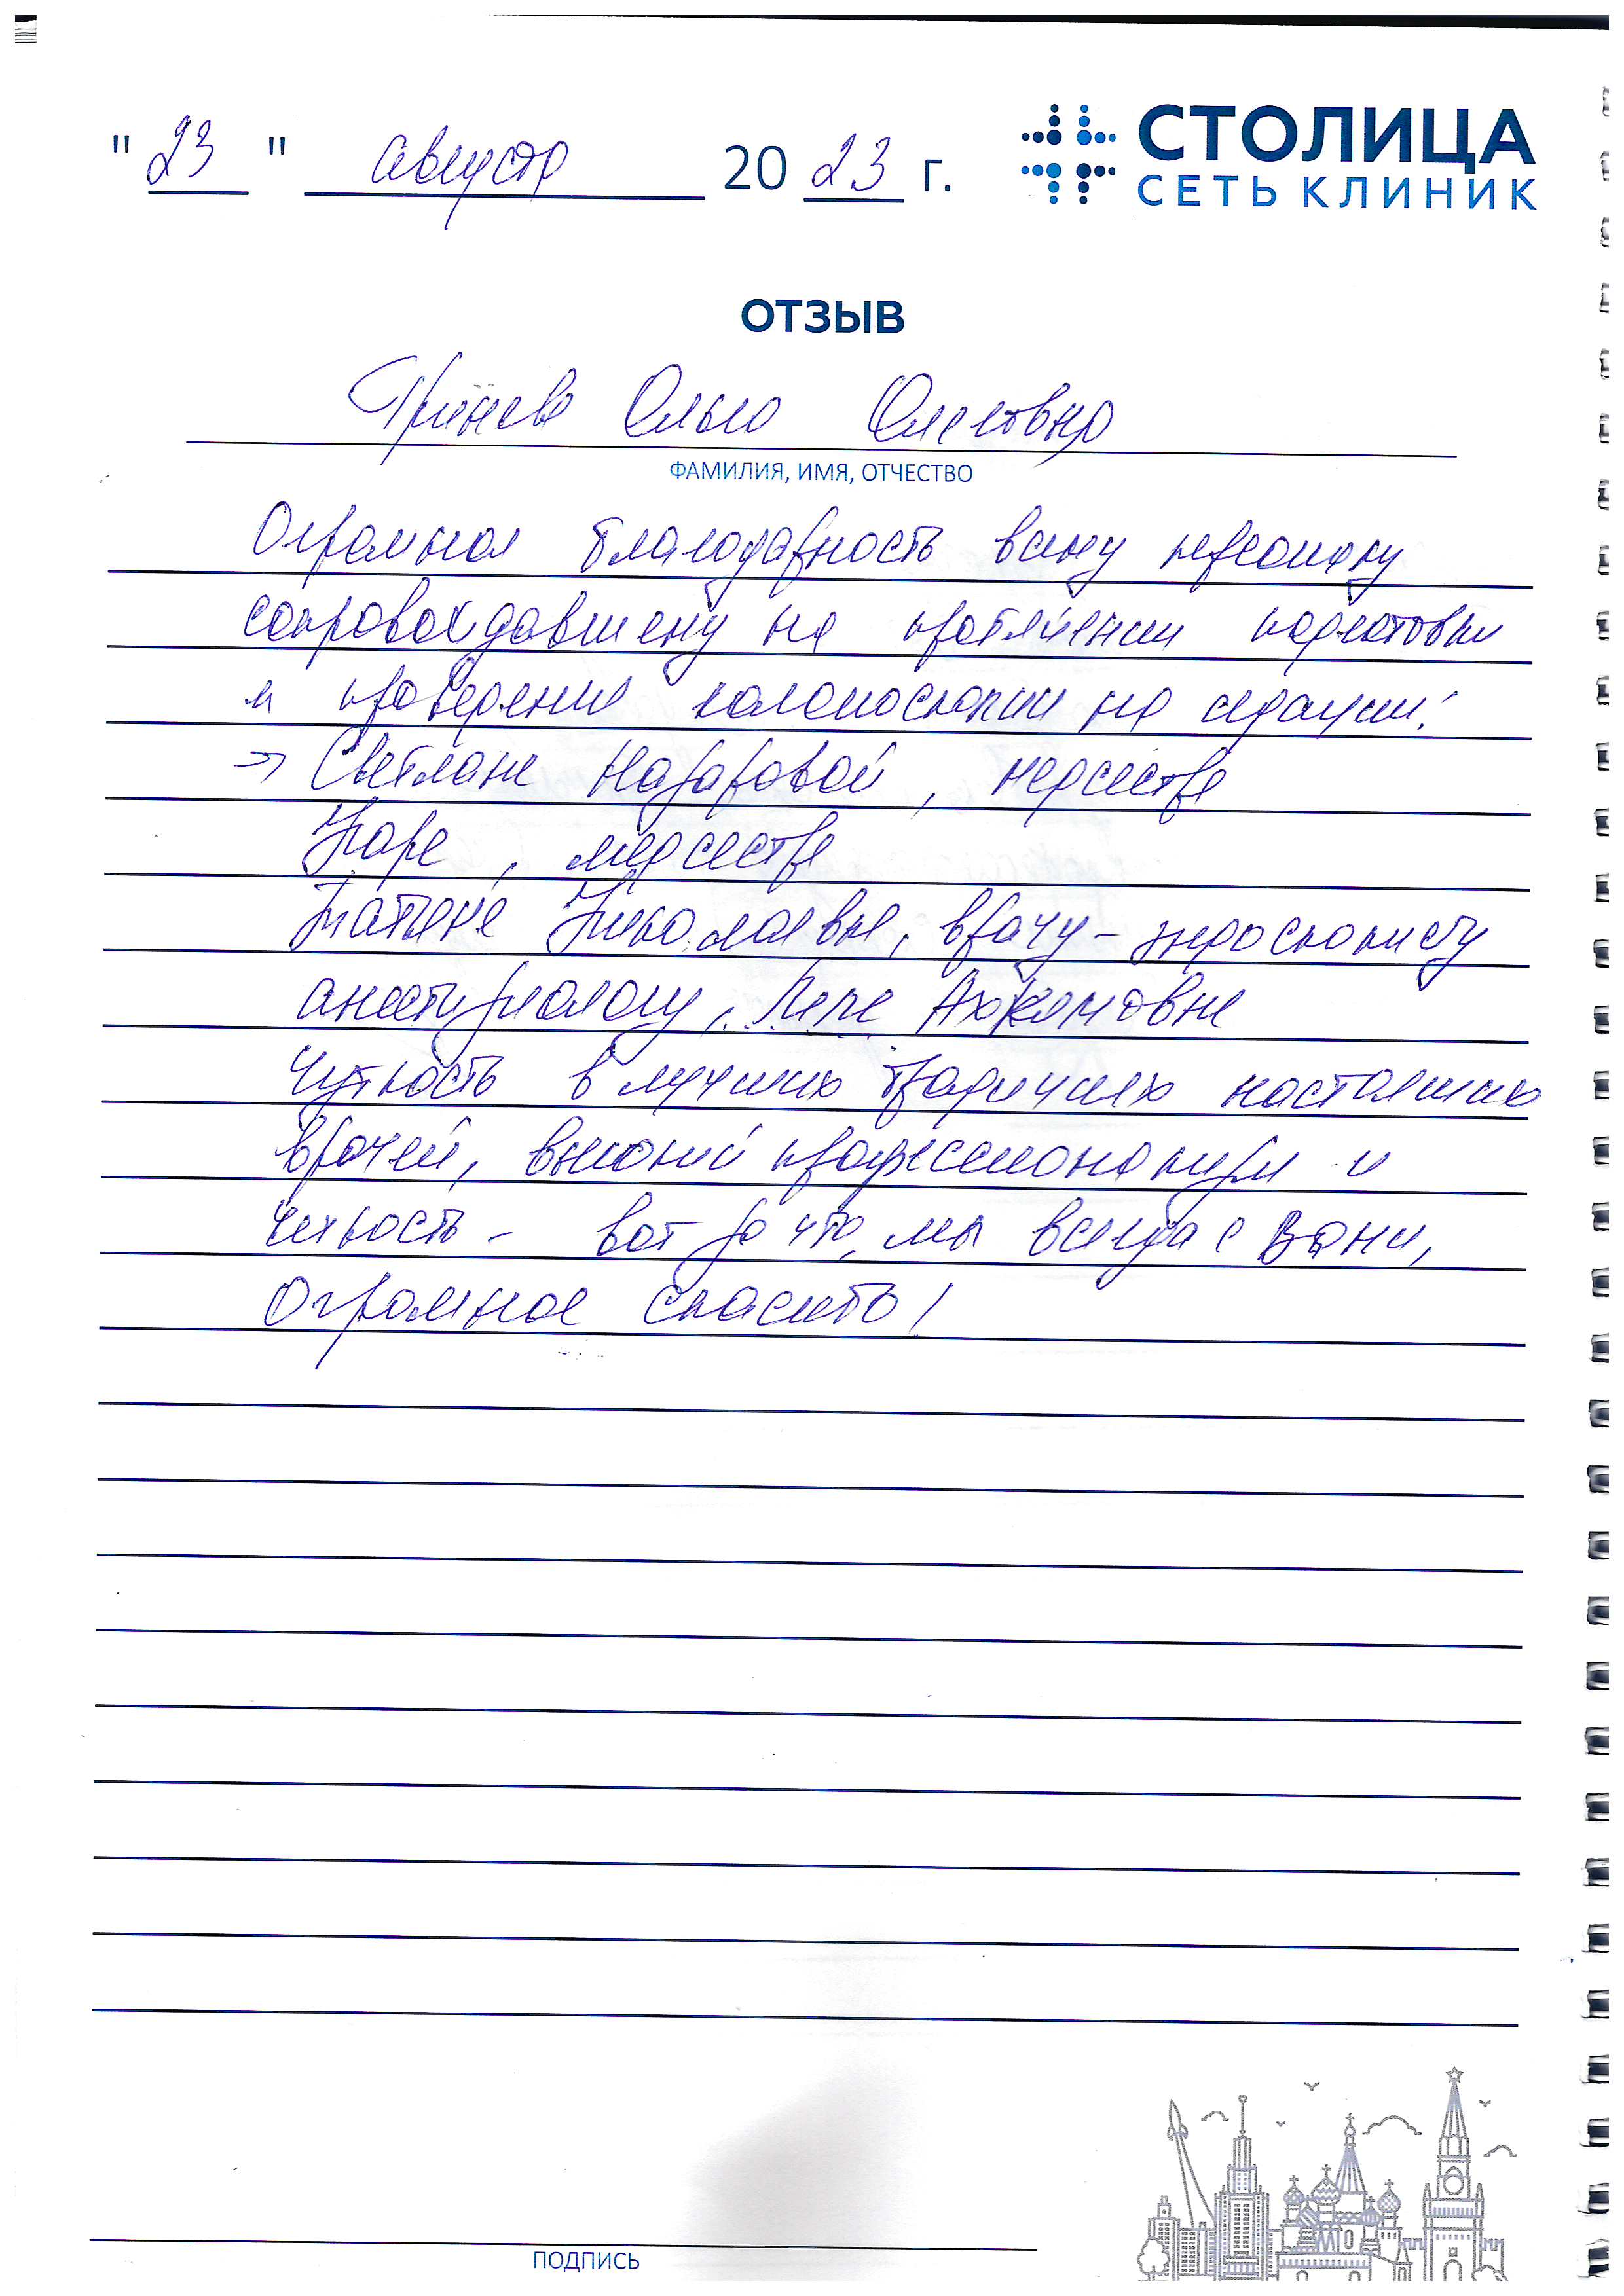 " 23 " августа 20 23 г.
СТОЛИЦА
СЕТЬ КЛИНИК
ОТЗЫВ
Ольга Олеговна
ФАМИЛИЯ, ИМЯ, ОТЧЕСТВО
Огромная благодарность всему персоналу
сопровождавшему на протяжении подготовки
и проведения колоноскопии на седации:
Светлане Назаровой, медсестре
Норе, медсестре
Татьяне Николаевне, врачу-эндоскописту
анестезиологу, Лене
Чуткость в лучших традициях настоящих
врачей, высокий профессионализм и
чуткость - вот за что мы всегда с Вами,
Огромное спасибо!
ПОДПИСЬ